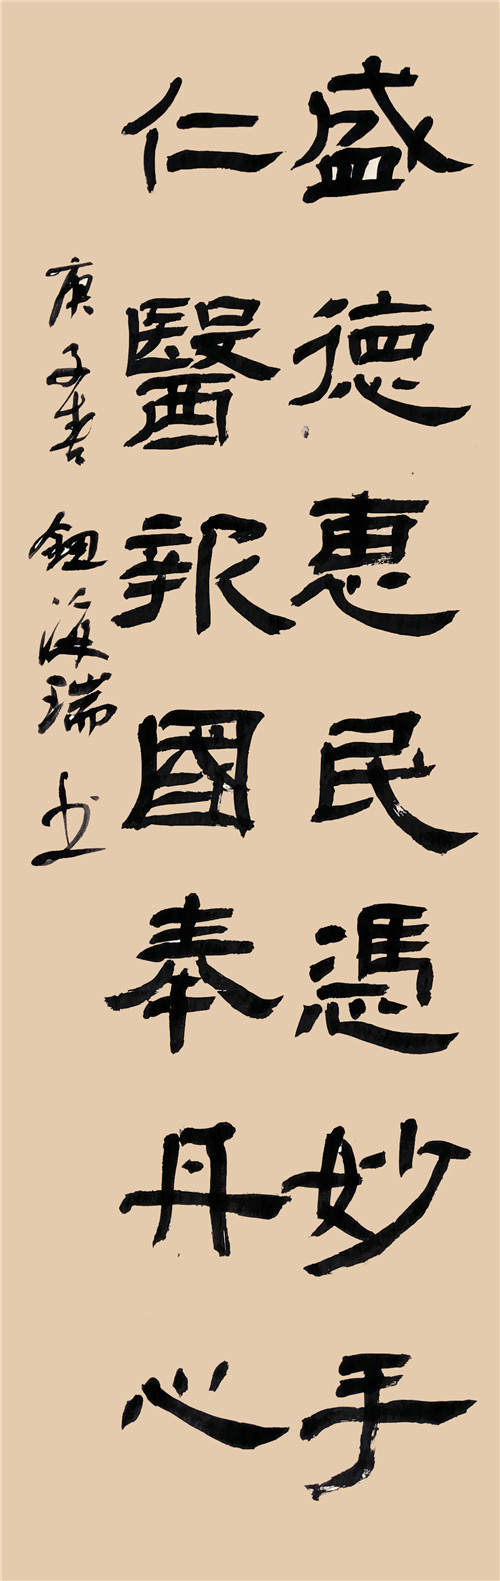 盛德惠民憑妙手
仁醫報國奉丹心
庚子春 鈕海瑞书